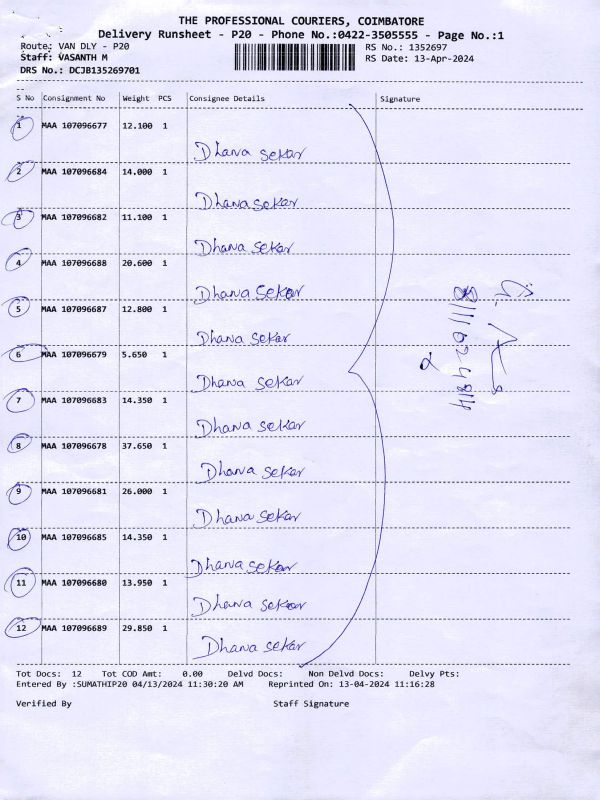 THE PROFESSIONAL COURIERS, COIMBATORE
Delivery Runsheet - P20 - Phone No.:0422-3505555 - Page No.:1
Route: VAN DLY - P20
RS No.: 1352697
Staff: VASANTH M
RS Date: 13-Apr-2024
DRS No.: DCJB135269701
S No Consignment No Weight PCS Consignee Details Signature
1 MAA 107096677 12.100 1
Dhana sekar
2 MAA 107096684 14.000 1
Dhana sekar
3 MAA 107096682 11.100 1
Dhana sekar
4 MAA 107096688 20.600 1
Dhana sekar
5 MAA 107096687 12.800 1
Dhana sekar
6 MAA 107096679 5.650 1
Dhana sekar
7 MAA 107096683 14.350 1
Dhana sekar
8 MAA 107096678 37.650 1
Dhana sekar
9 MAA 107096681 26.000 1
Dhana sekar
10 MAA 107096685 14.350 1
Dhana sekar
11 MAA 107096680 13.950 1
Dhana sekar
12 MAA 107096689 29.850 1
Dhana sekar
Tot Docs: 12 Tot COD Amt: 0.00 Delvd Docs: Non Delvd Docs: Delvy Pts:
Entered By :SUMATHIP20 04/13/2024 11:30:20 AM Reprinted On: 13-04-2024 11:16:28
Verified By Staff Signature